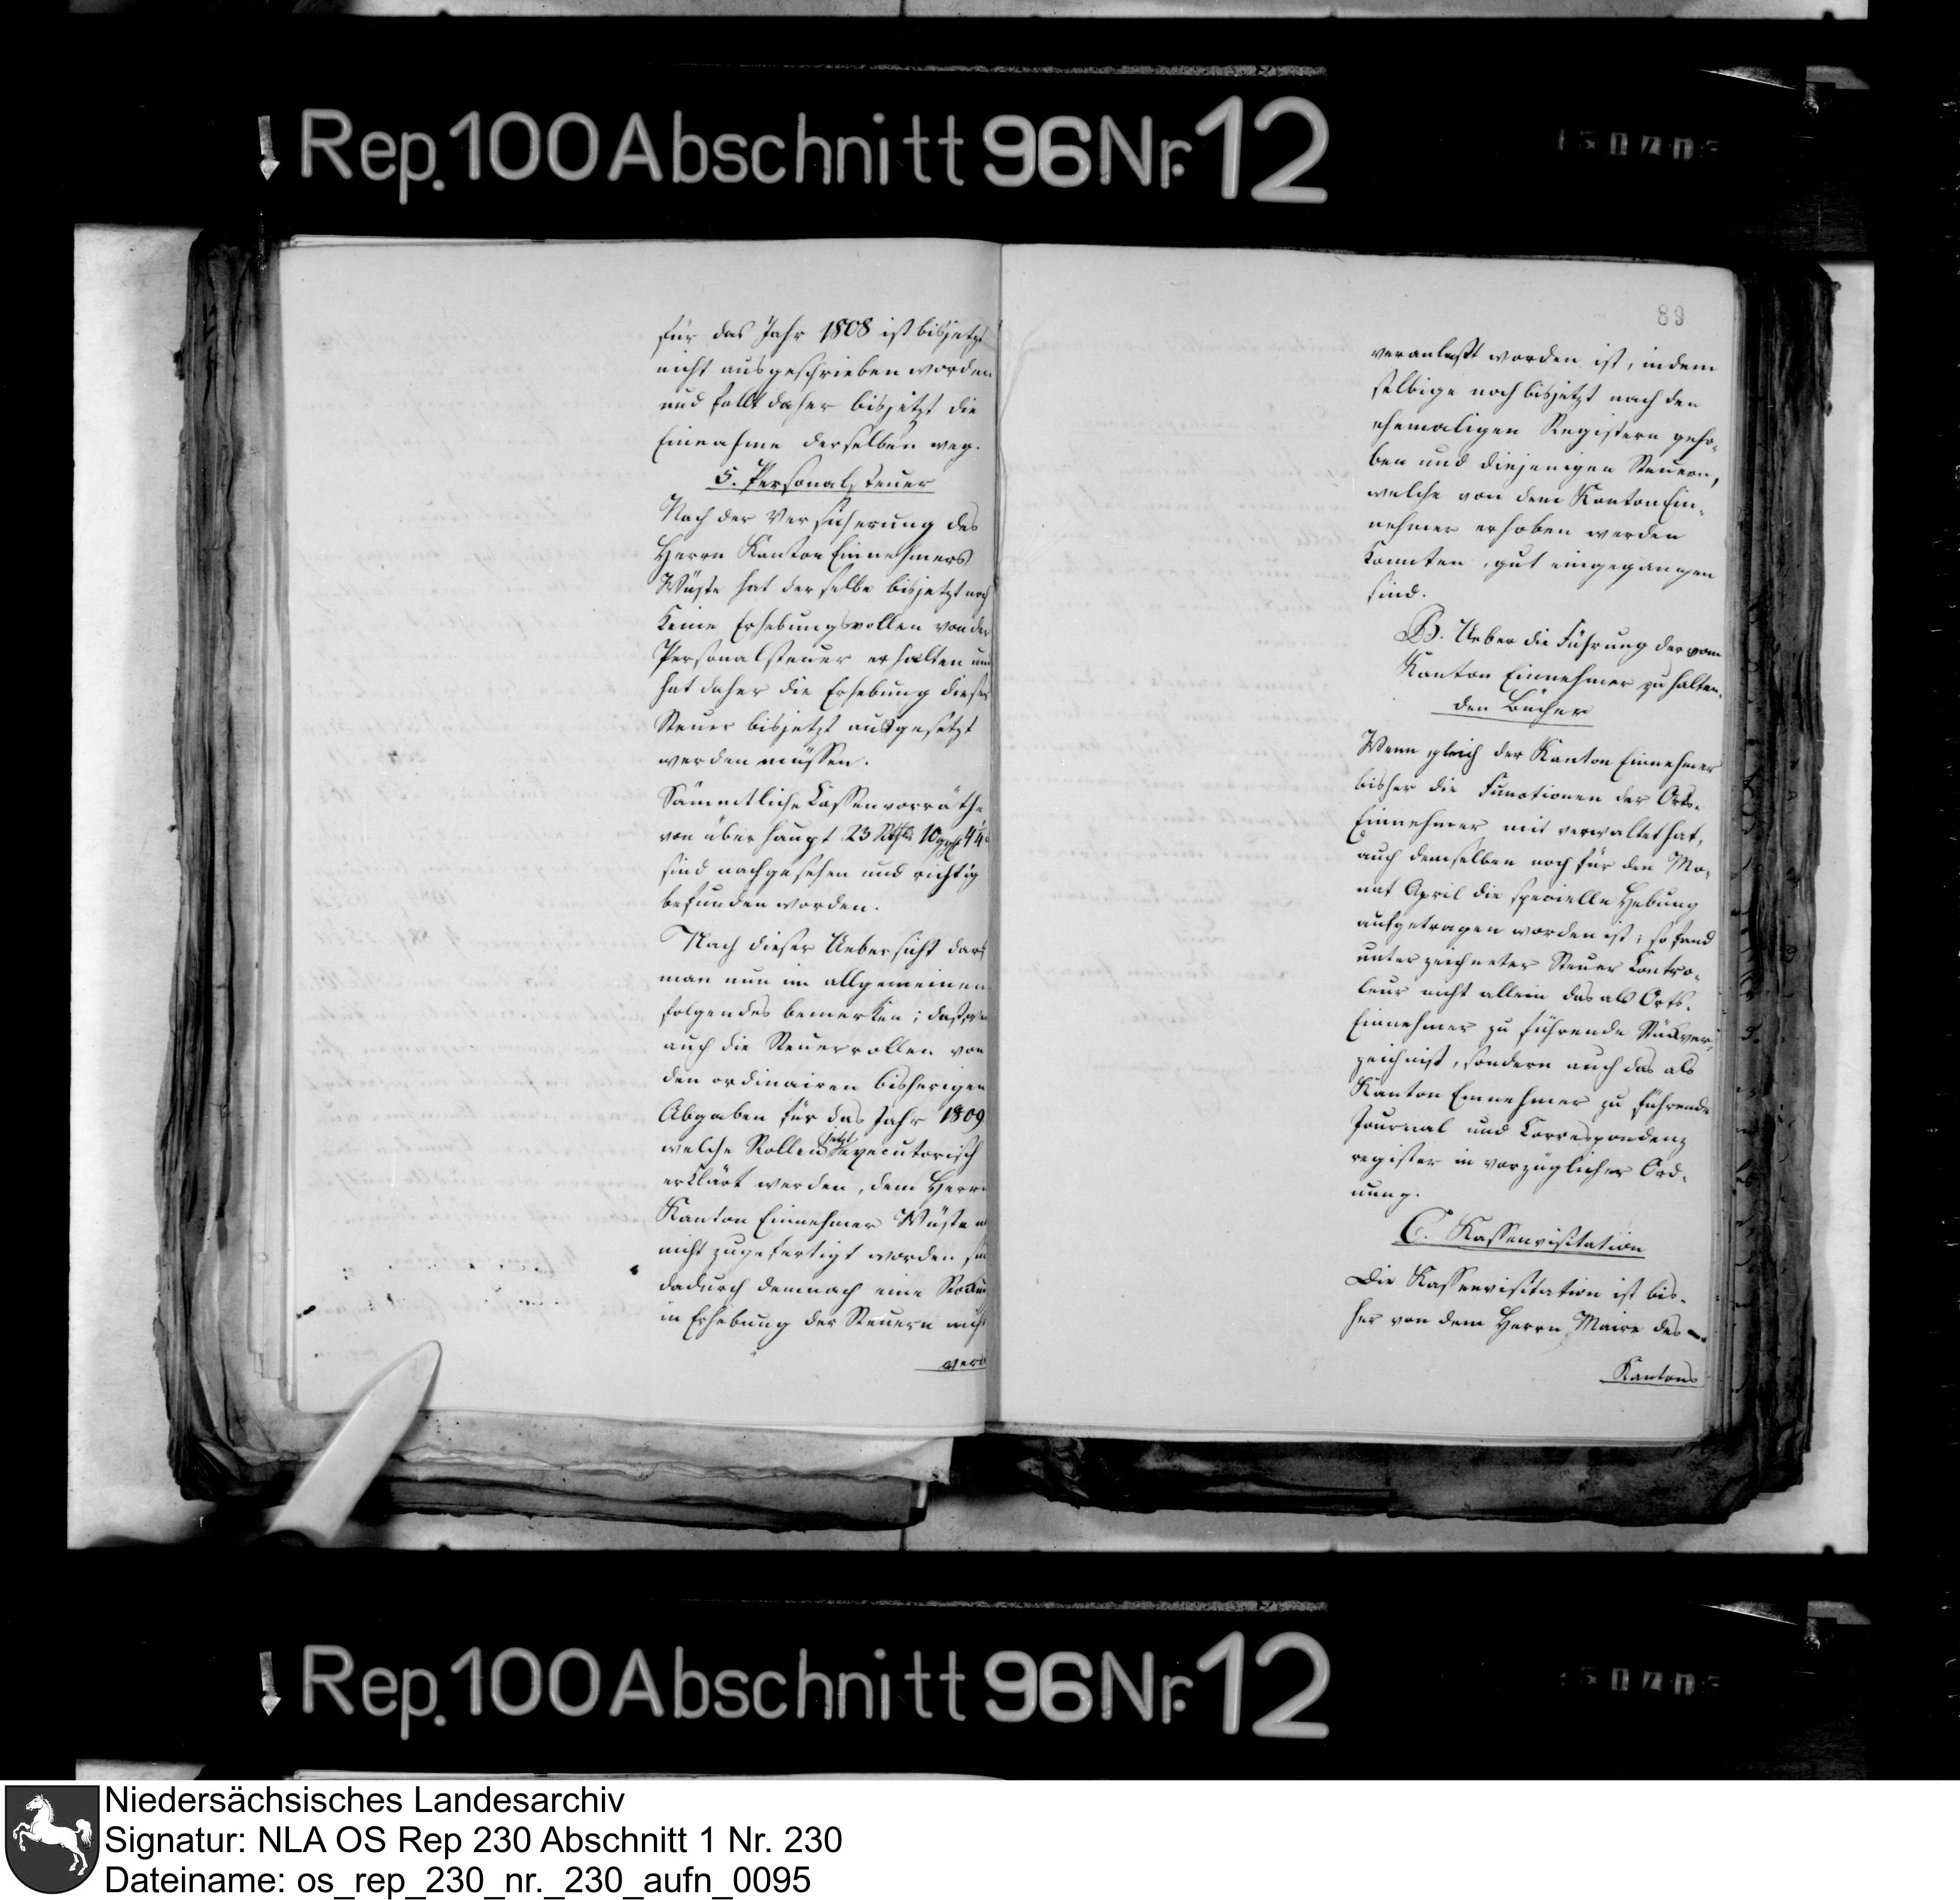 Rep. 100 Abschnitt 96 Nr. 12
für das Jahr 1808 ist bisjetzt
nicht ausgeschrieben worden
und fällt daher bisjetzt die
Einnahme derselben weg.
5. Personalsteuer
Nach der Versicherung des
Herrn Kanton Einnehmers
Wüste hat derselbe bisjetzt noch
keine Erhebungsrollen von der
Personalsteuer erhalten und
hat daher die Erhebung dieser
Steuer bisjetzt ausgesetzt
werden müssen.
Sämmtliche Cassenvorräthe
von überhaupt 23 Rthlr 10 ggl 4
sind nachgesehen und richtig
befunden worden.
Nach dieser Uebersicht darf
man nun im allgemeinen
folgendes bemerken; daß, wenn
auch die Steuerrollen von
den ordinairen bisherigen
Abgaben für das Jahr 1809
welche Rollen jetzt executorisch
erklärt werden, dem Herrn
Kanton Einnehmer Wüste
nicht zugefertigt worden,
dadurch demnach eine
in Erhebung der Steuern nicht
ver
89
veranlaßt worden ist, indem
selbige noch bisjetzt nach den
ehemaligen Registern geho-
ben und diejenigen Steuern,
welche von dem Kanton Ein-
nehmer erhoben werden
konnten, gut eingegangen
sind.
B. Ueber die Führung der vom
Kanton Einnehmer zu halten-
den Bücher
Wenn gleich der Kanton Einnehmer
bisher die Functionen der Orts-
Einnehmer mit verwaltet hat,
auch demselben noch für den Mo-
nat April die specielle Hebung
aufgetragen worden ist; so fand
unterzeichneter Steuer Contro-
leur nicht allein das als Orts-
Einnehmer zu führende Stückver-
zeichniß, sondern auch das als
Kanton Einnehmer zu führende
Journal und Correspondenz
register in vorzüglicher Ord-
nung.
C. Kassenvisitation
Die Kassenvisitation ist bis-
her von dem Herrn Maire des
Kantons
Rep. 100 Abschnitt 96 Nr. 12
Niedersächsisches Landesarchiv
Signatur: NLA OS Rep 230 Abschnitt 1 Nr. 230
Dateiname: os_rep_230_nr._230_aufn_0095